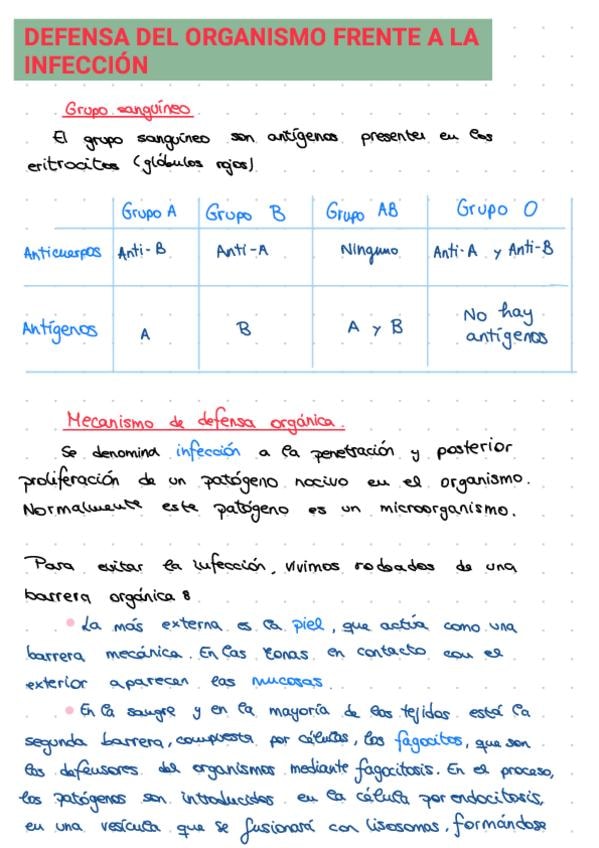 DEFENSA DEL ORGANISMO FRENTE A LA
INFECCIÓN
Grupo sanguíneo
El grupo sanguíneo son antígenos presentes en los
eritrocitos (glóbulos rojos)
Grupo A Grupo B Grupo AB Grupo O
Anticuerpos Anti-B Anti-A Ninguno Anti-A y Anti-B
Antígenos A B A y B No hay
antígenos
Mecanismo de defensa orgánica.
Se denomina infección a la penetración y posterior
proliferación de un patógeno nocivo en el organismo.
Normalmente este patógeno es un microorganismo.
Para evitar la infección, vivimos rodeados de una
barrera orgánica:
• La más externa es la piel, que actúa como una
barrera mecánica. En las zonas en contacto con el
exterior aparecen las mucosas.
• En la sangre y en la mayoría de los tejidos está la
segunda barrera, compuesta por células, los fagocitos, que son
los defensores del organismos mediante fagocitosis. En el proceso,
los patógenos son introducidos en la célula por endocitosis,
en una vesícula que se fusionará con lisosomas, formándose